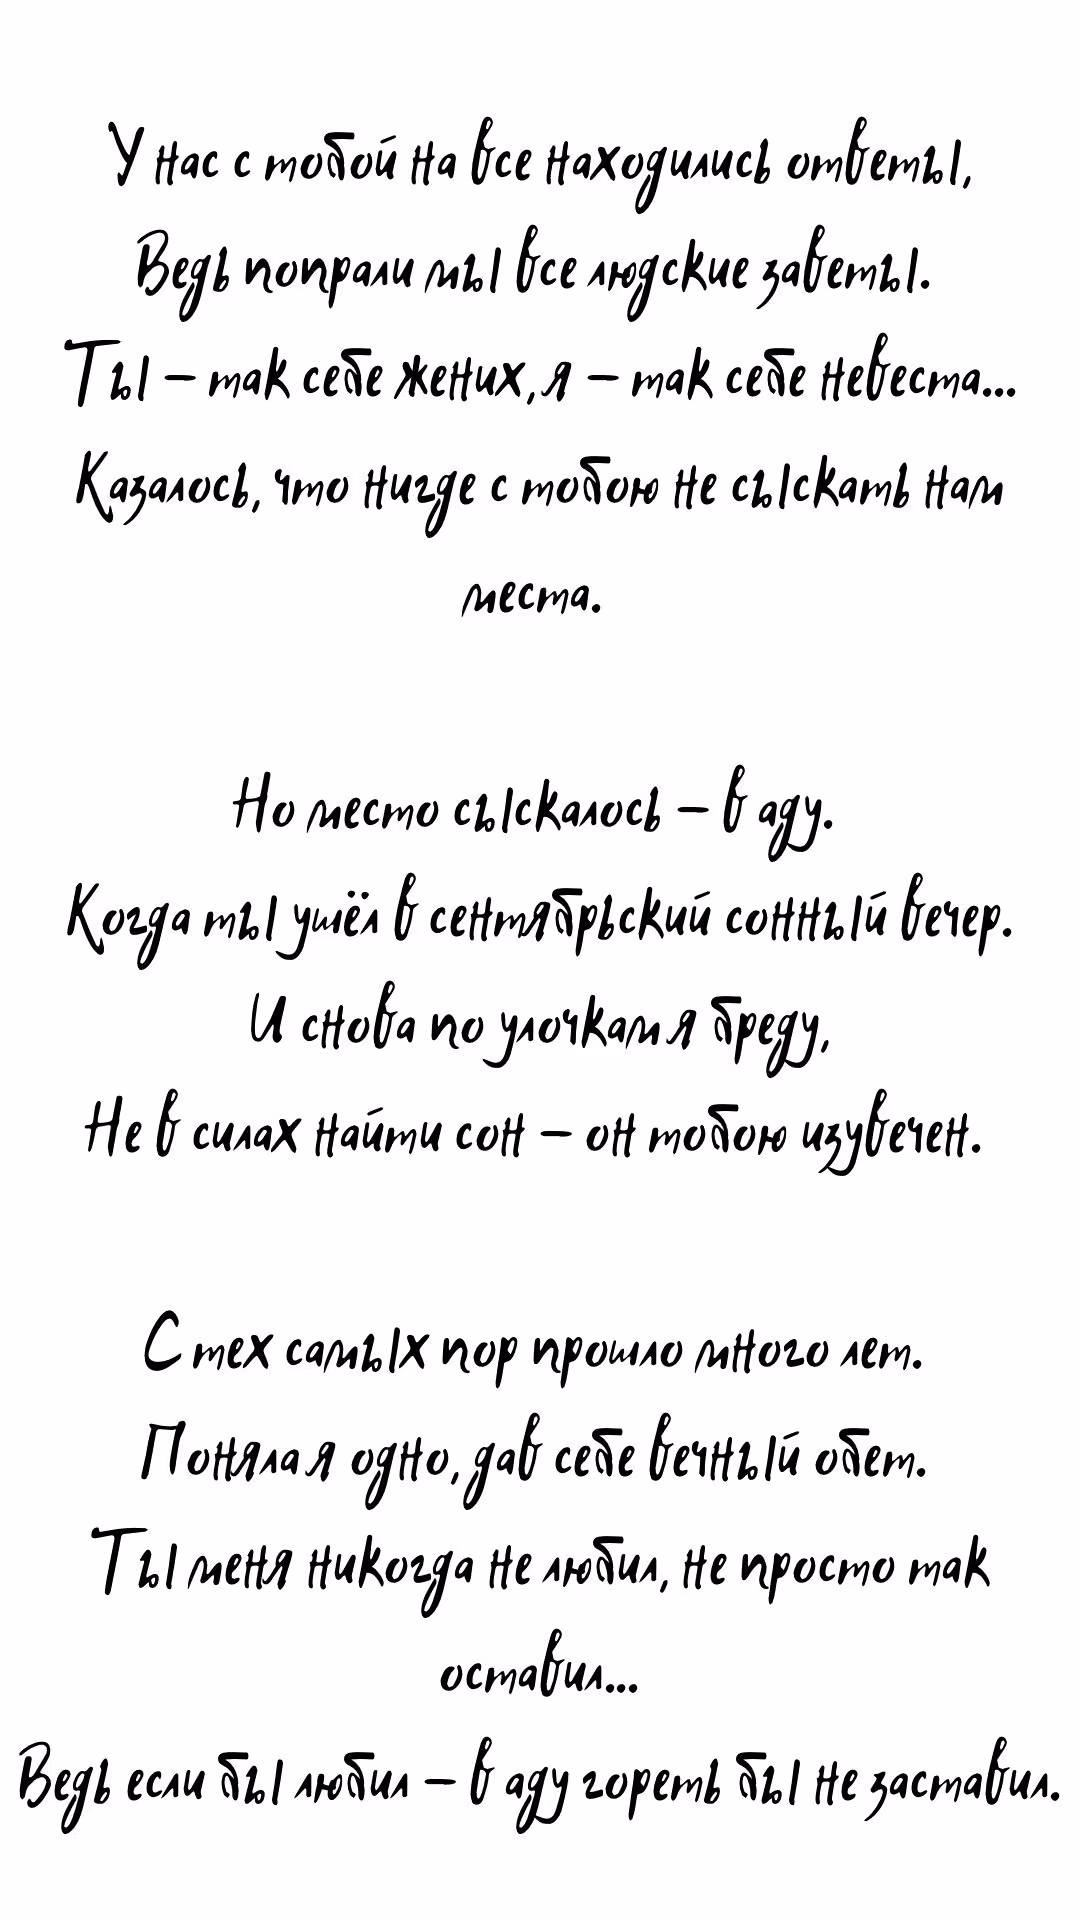 У нас с тобой на все находились ответы,
Ведь попрали мы все людские заветы.
Ты – так себе жених, я – так себе невеста...
Казалось, что нигде с тобою не сыскать нам
места.
Но место сыскалось – в аду.
Когда ты ушёл в сентябрьский сонный вечер.
И снова по улочкам я бреду,
Не в силах найти сон – он тобою изувечен.
С тех самых пор прошло много лет.
Поняла я одно, дав себе вечный обет.
Ты меня никогда не любил, не просто так
оставил...
Ведь если бы любил – в аду гореть бы не заставил.